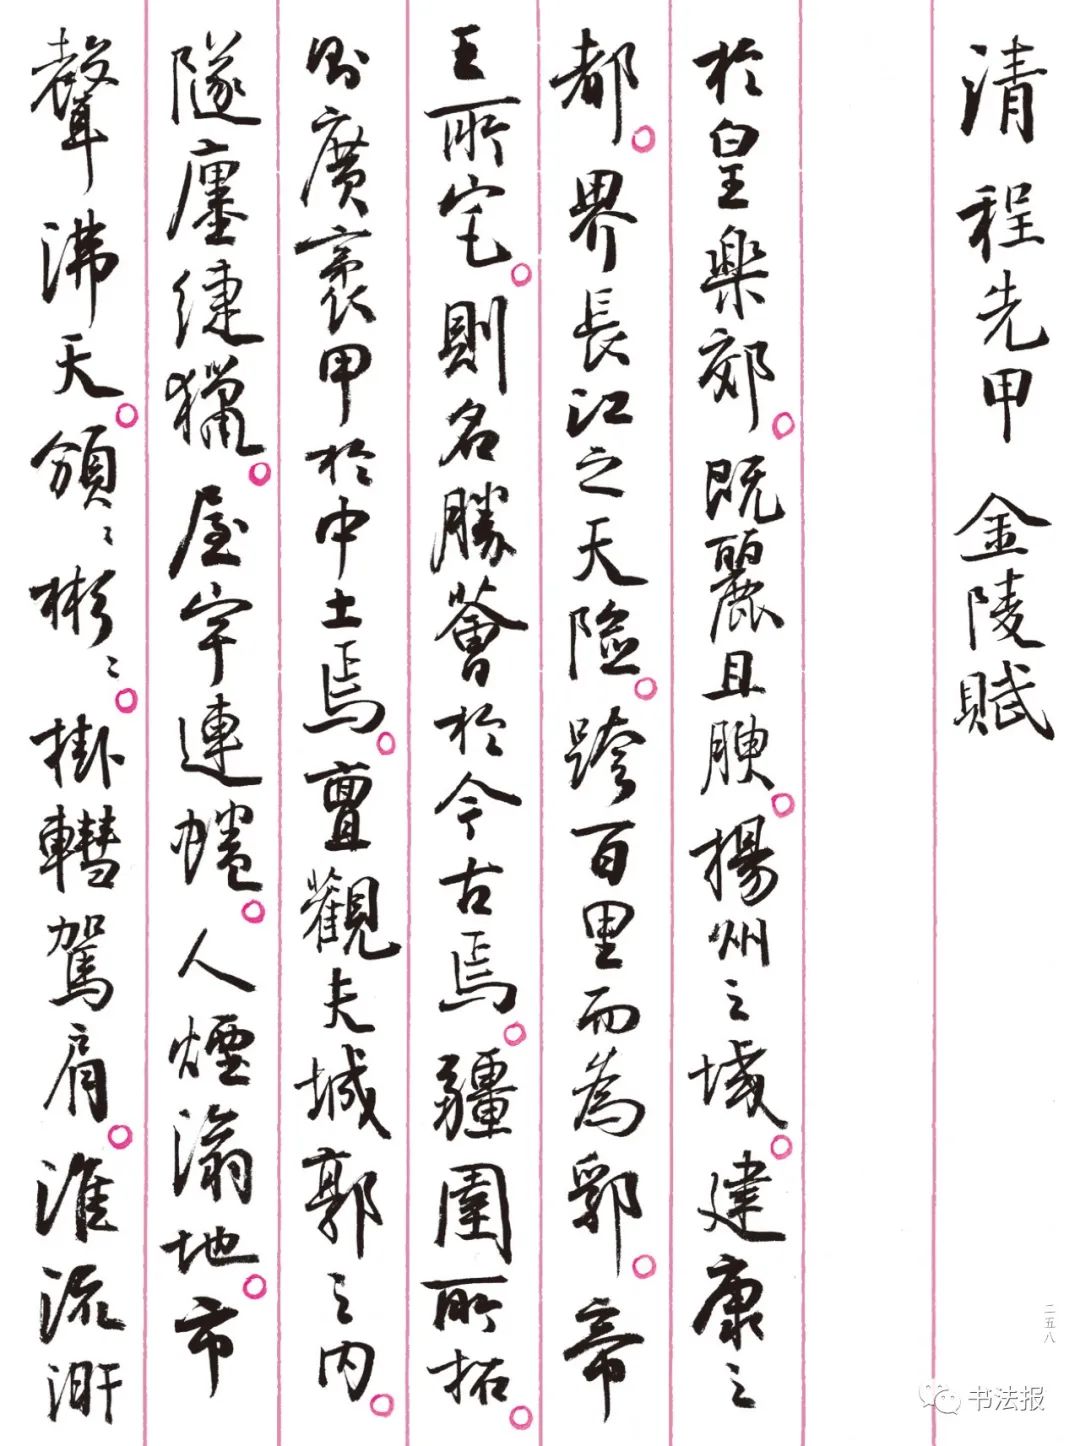 清 程先甲 金陵賦
於皇樂郊。既麗且腴。揚州之域。建康之
都。界長江之天險。跨百里而為郛。帝
王所宅。則名勝薈於今古焉。疆圉所拓。
則廣袤甲於中土焉。亶觀夫城郭之内。
隧廛緁獵。屋宇連蜷。人煙滃地。市
聲沸天。頒〻彬〻。掛轊駕肩。淮流汧
二五八
书法报